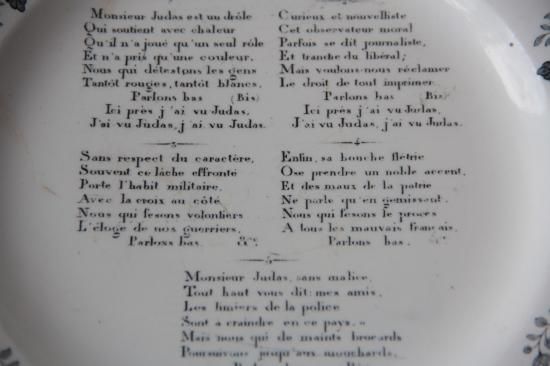 Monsieur Judas est un drôle
Qui soutient avec chaleur
Qu'il n'a joué qu'un seul rôle
Et n'a pris qu'une couleur.
Nous qui détestons les gens
Tantôt rouges, tantôt blancs,
Parlons bas (Bis)
Ici près j'ai vu Judas,
J'ai vu Judas, j'ai vu Judas.
Curieux et nouvelliste
Cet observateur moral
Parfois se dit journaliste,
Et tranche du libéral;
Mais voulons-nous réclamer
Le droit de tout imprimer
Parlons bas (Bis)
Ici près j'ai vu Judas,
J'ai vu Judas, j'ai vu Judas.
3
Sans respect du caractère,
Souvent ce lâche effronté
Porte l'habit militaire,
Avec la croix au côté
Nous qui fesons volontiers
L'éloge de nos guerriers.
Parlons bas. &c.
4
Enfin, sa bouche flétrie
Ose prendre un noble accent,
Et des maux de la patrie
Ne parle qu'en gemissant.
Nous qui fesons le procès
A tous les mauvais français,
Parlons bas. &c.
5
Monsieur Judas, sans malice,
Tout haut vous dit: mes amis,
Les limiers de la police
Sont à craindre en ce pays. »
Mais nous qui de maints brocards
Poursuivons jusqu'aux mouchards,